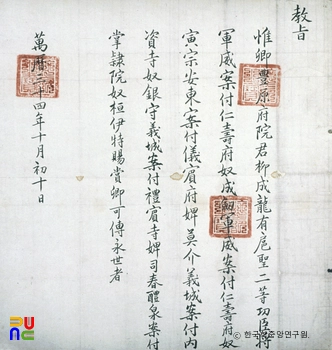 教旨
惟卿豊原府院君柳成龍有扈聖二等功臣將
軍威案付仁壽府奴成劒軍威案付仁壽府奴
寅宗安東案付儀賓府婢莫介義城案付內
資寺奴銀守義城案付禮賓寺婢司春醴泉案付
掌隷院奴桓伊特賜賞卿可傳永世者
萬曆三十四年十月初十日
© 한국학중앙연구원.